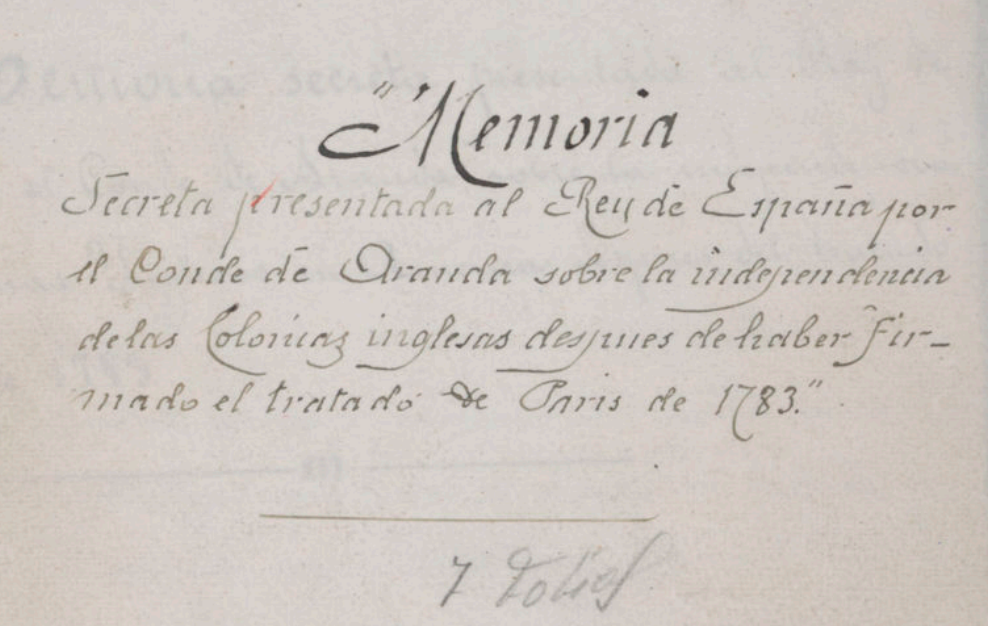 "Memoria
Secreta presentada al Rey de España por
el Conde de Aranda sobre la independencia
de las Colonias inglesas despues de haber fir-
mado el tratado de Paris de 1783."
7 Folios